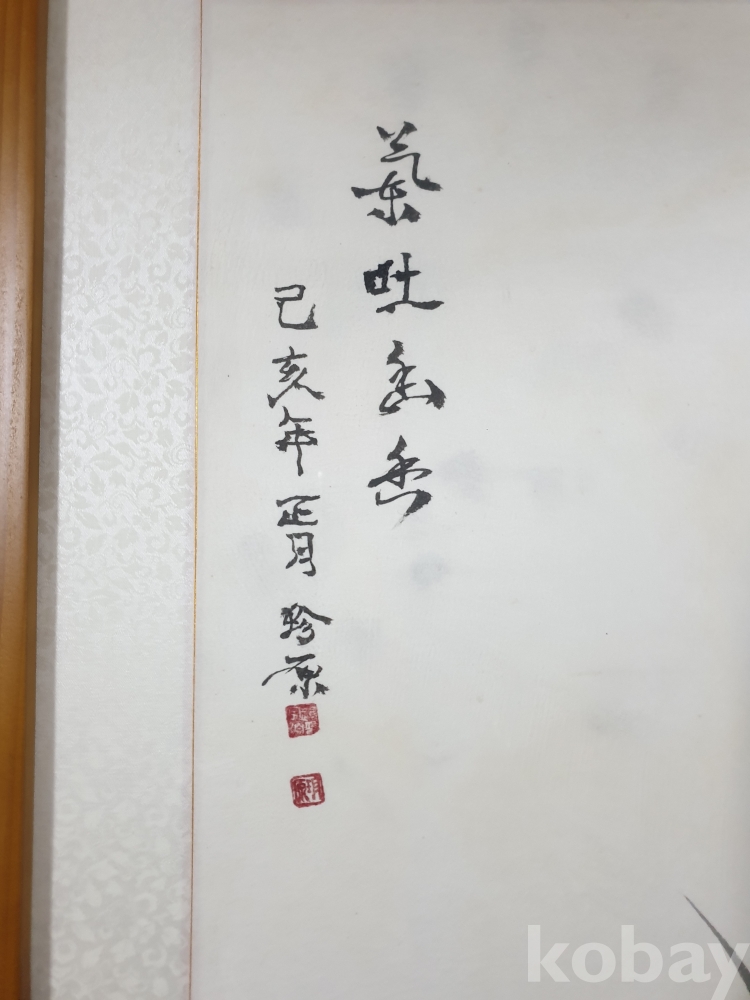 氣吐幽香
己亥年正月 珍原
kobay